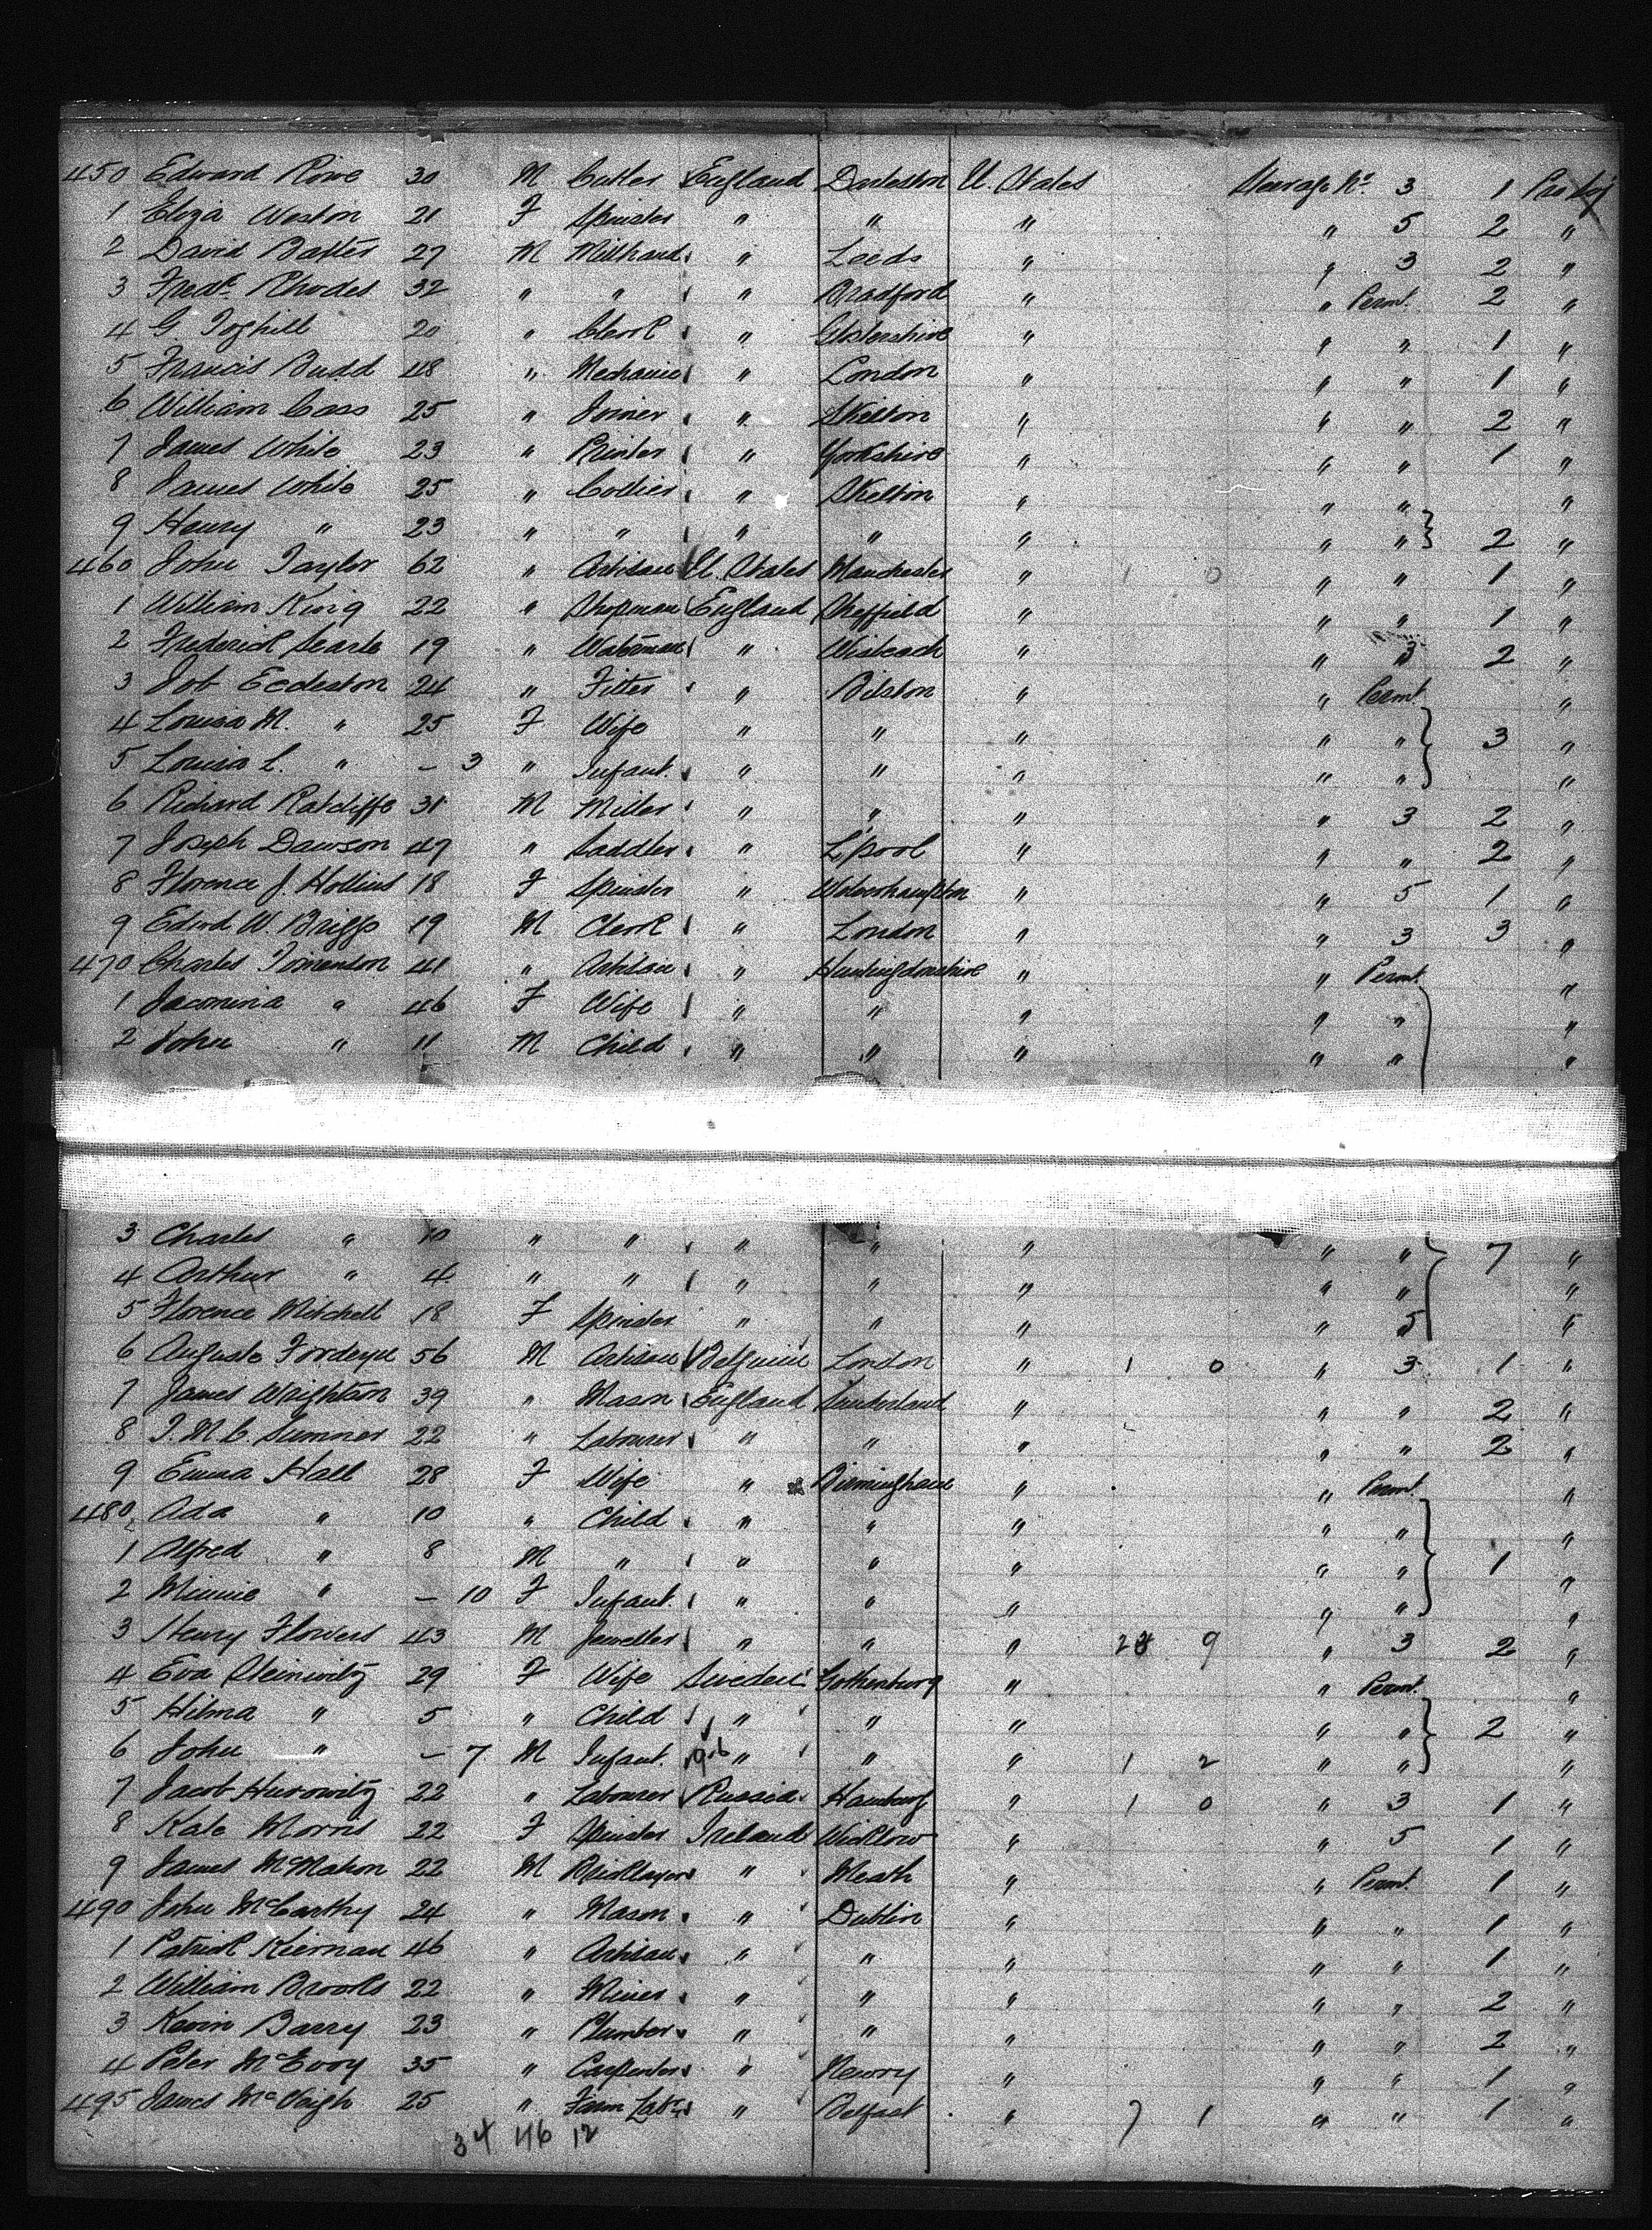 450 Edward Rowe 30 M Cutler England Darlaston U. States Steerage No. 3 1
1 Eliza Weston 21 F Spinster " " " " 5 2 "
2 David Batter 27 M Millhand " Leeds " " 3 2 "
3 Fredk. Rhodes 32 " " " Bradford " " Permt. 2 "
4 G Toghill 20 " Clerk " Glostershire " " " 1 "
5 Francis Budd 48 " Mechanic " London " " " 1 "
6 William Cass 25 " Joiner " Skelton " " " 2 "
7 James White 23 " Printer " Yorkshire " " " 1 "
8 James White 25 " Collier " Skelton " " " "
9 Henry " 23 " " " " " " " 2 "
460 John Taylor 62 " Artisan U. States Manchester " 1 0 " " 1 "
1 William King 22 " Shopman England Sheffield " " " 1 "
2 Frederick Searle 19 " Waterman " Wisbeach " " 3 2 "
3 Job Eccleston 24 " Fitter " Bilston " " Permt. "
4 Louisa M. " 25 F Wife " " " " " 3 "
5 Louisa L. " - 3 " Infant. " " " " " "
6 Richard Ratcliffe 31 M Miller " " " " 3 2 "
7 Joseph Dawson 47 " Saddler " L'pool " " " 2 "
8 Florence J. Hollins 18 F Spinster " Wolverhampton " " 5 1 "
9 Edwd W. Briggs 19 M Clerk " London " " 3 3 "
470 Charles Tomenson 41 " Artisan " Huntingdonshire " " Permt. "
1 Jacomina " 46 F Wife " " " " " "
2 John " 11 M Child " " " " " "
3 Charles " 10 " " " " " " " 7 "
4 Arthur " 4 " " " " " " " "
5 Florence Mitchell 18 F Spinster " " " " 5 "
6 Auguste 56 M Artisan Belguim London " 1 0 " 3 1 "
7 James Wrightson 39 " Mason England Sunderland " " " 2 "
8 J. M. C. Sumner 22 " Labourer " " " " " 2 "
9 Emma Hall 28 F Wife " Birmingham " " Permt. "
480 Ada " 10 " Child " " " " " "
1 Alfred " 8 M " " " " " " 1 "
2 Minnie " - 10 F Infant. " " " " " "
3 Henry Flowers 43 M Jeweller " " " 9 " 3 2 "
4 Eva Steinwitz 29 F Wife Sweden Gothenburg " " Permt. "
5 Hilma " 5 " Child " " " " " 2 "
6 John " - 7 M Infant. " " " 1 2 " " "
7 Jacob Hurowitz 22 " Labourer Russia Hamburg " 1 0 " 3 1 "
8 Kate Morris 22 F Spinster Ireland Wicklow " " 5 1 "
9 James McMahon 22 M Bricklayer " Meath " " Permt. 1 "
490 John McCarthy 24 " Mason " Dublin " " " 1 "
1 Patrick Kiernan 46 " Artisan " " " " " 1 "
2 William Brooks 22 " Miner " " " " " 2 "
3 Kevin Barry 23 " Plumber " " " " " 2 "
4 Peter McEvoy 35 " Carpenter " Newry " " " 1 "
495 James McVeigh 25 " Farm Labr. " Belfast " 7 1 " " 1 "
34 46 12